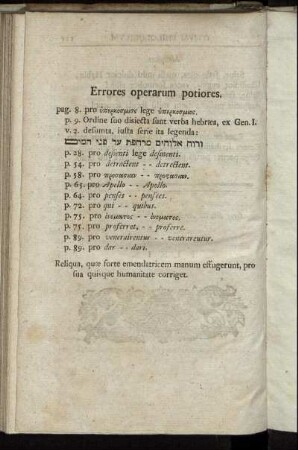 Errores operarum potiores.
pag. 8. pro lege
p. 9. Ordine suo disiecta sunt verba hebræa, ex Gen. I.
v. 2. desumta, iusta serie ita legenda:
ורוח אלוהים מרחפת על פני המים
p. 28. pro lege desinenti.
p. 54. pro detractent - - detrectent.
p. 58. pro - -
p. 63. pro Apello - - Apollo.
p. 64. pro penses - - pensees.
p. 72. pro qui - - quibus.
p. 75. pro - -
p. 75. pro proferrat, - - proferre.
p. 89. pro venerairentur - - venerarentur.
p. 89. pro der - - dari.
Reliqua, quæ forte emendatricem manum effugerunt, pro
sua quisque humanitate corriget.